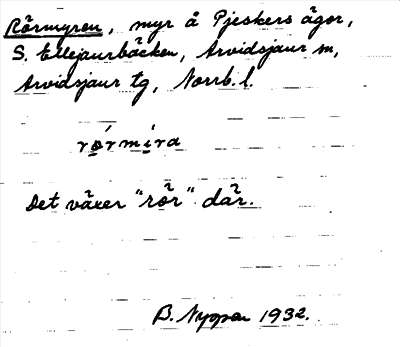 Rörmyren, myr å Pjeskers ägor,
S. Ellejaurbäcken, Arvidsjaur sn,
Arvidsjaur tg, Norrb. l.
rø̀rmíra
Det växer "rör" där.
B. Nyman 1932.